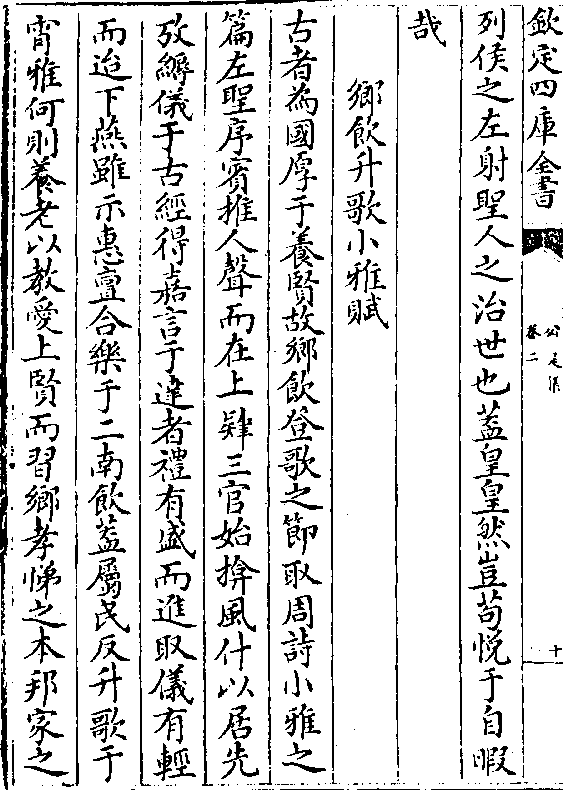 欽定四庫全書
公是集
卷二
十
列侯之左射聖人之治世也蓋皇皇然豈苟悅于自暇
哉
鄉飲升歌小雅賦
古者為國厚于養賢故鄉飲登歌之節取周詩小雅之
篇左聖序賓推人聲而在上肄三官始揜風什以居先
攷縟儀于古經得嘉言于達者禮有盛而進取儀有輕
而迨下燕雖示惠亶合樂于二南飲蓋屬民反升歌于
宵雅何則養老以教愛上賢而習鄉孝悌之本邦家之